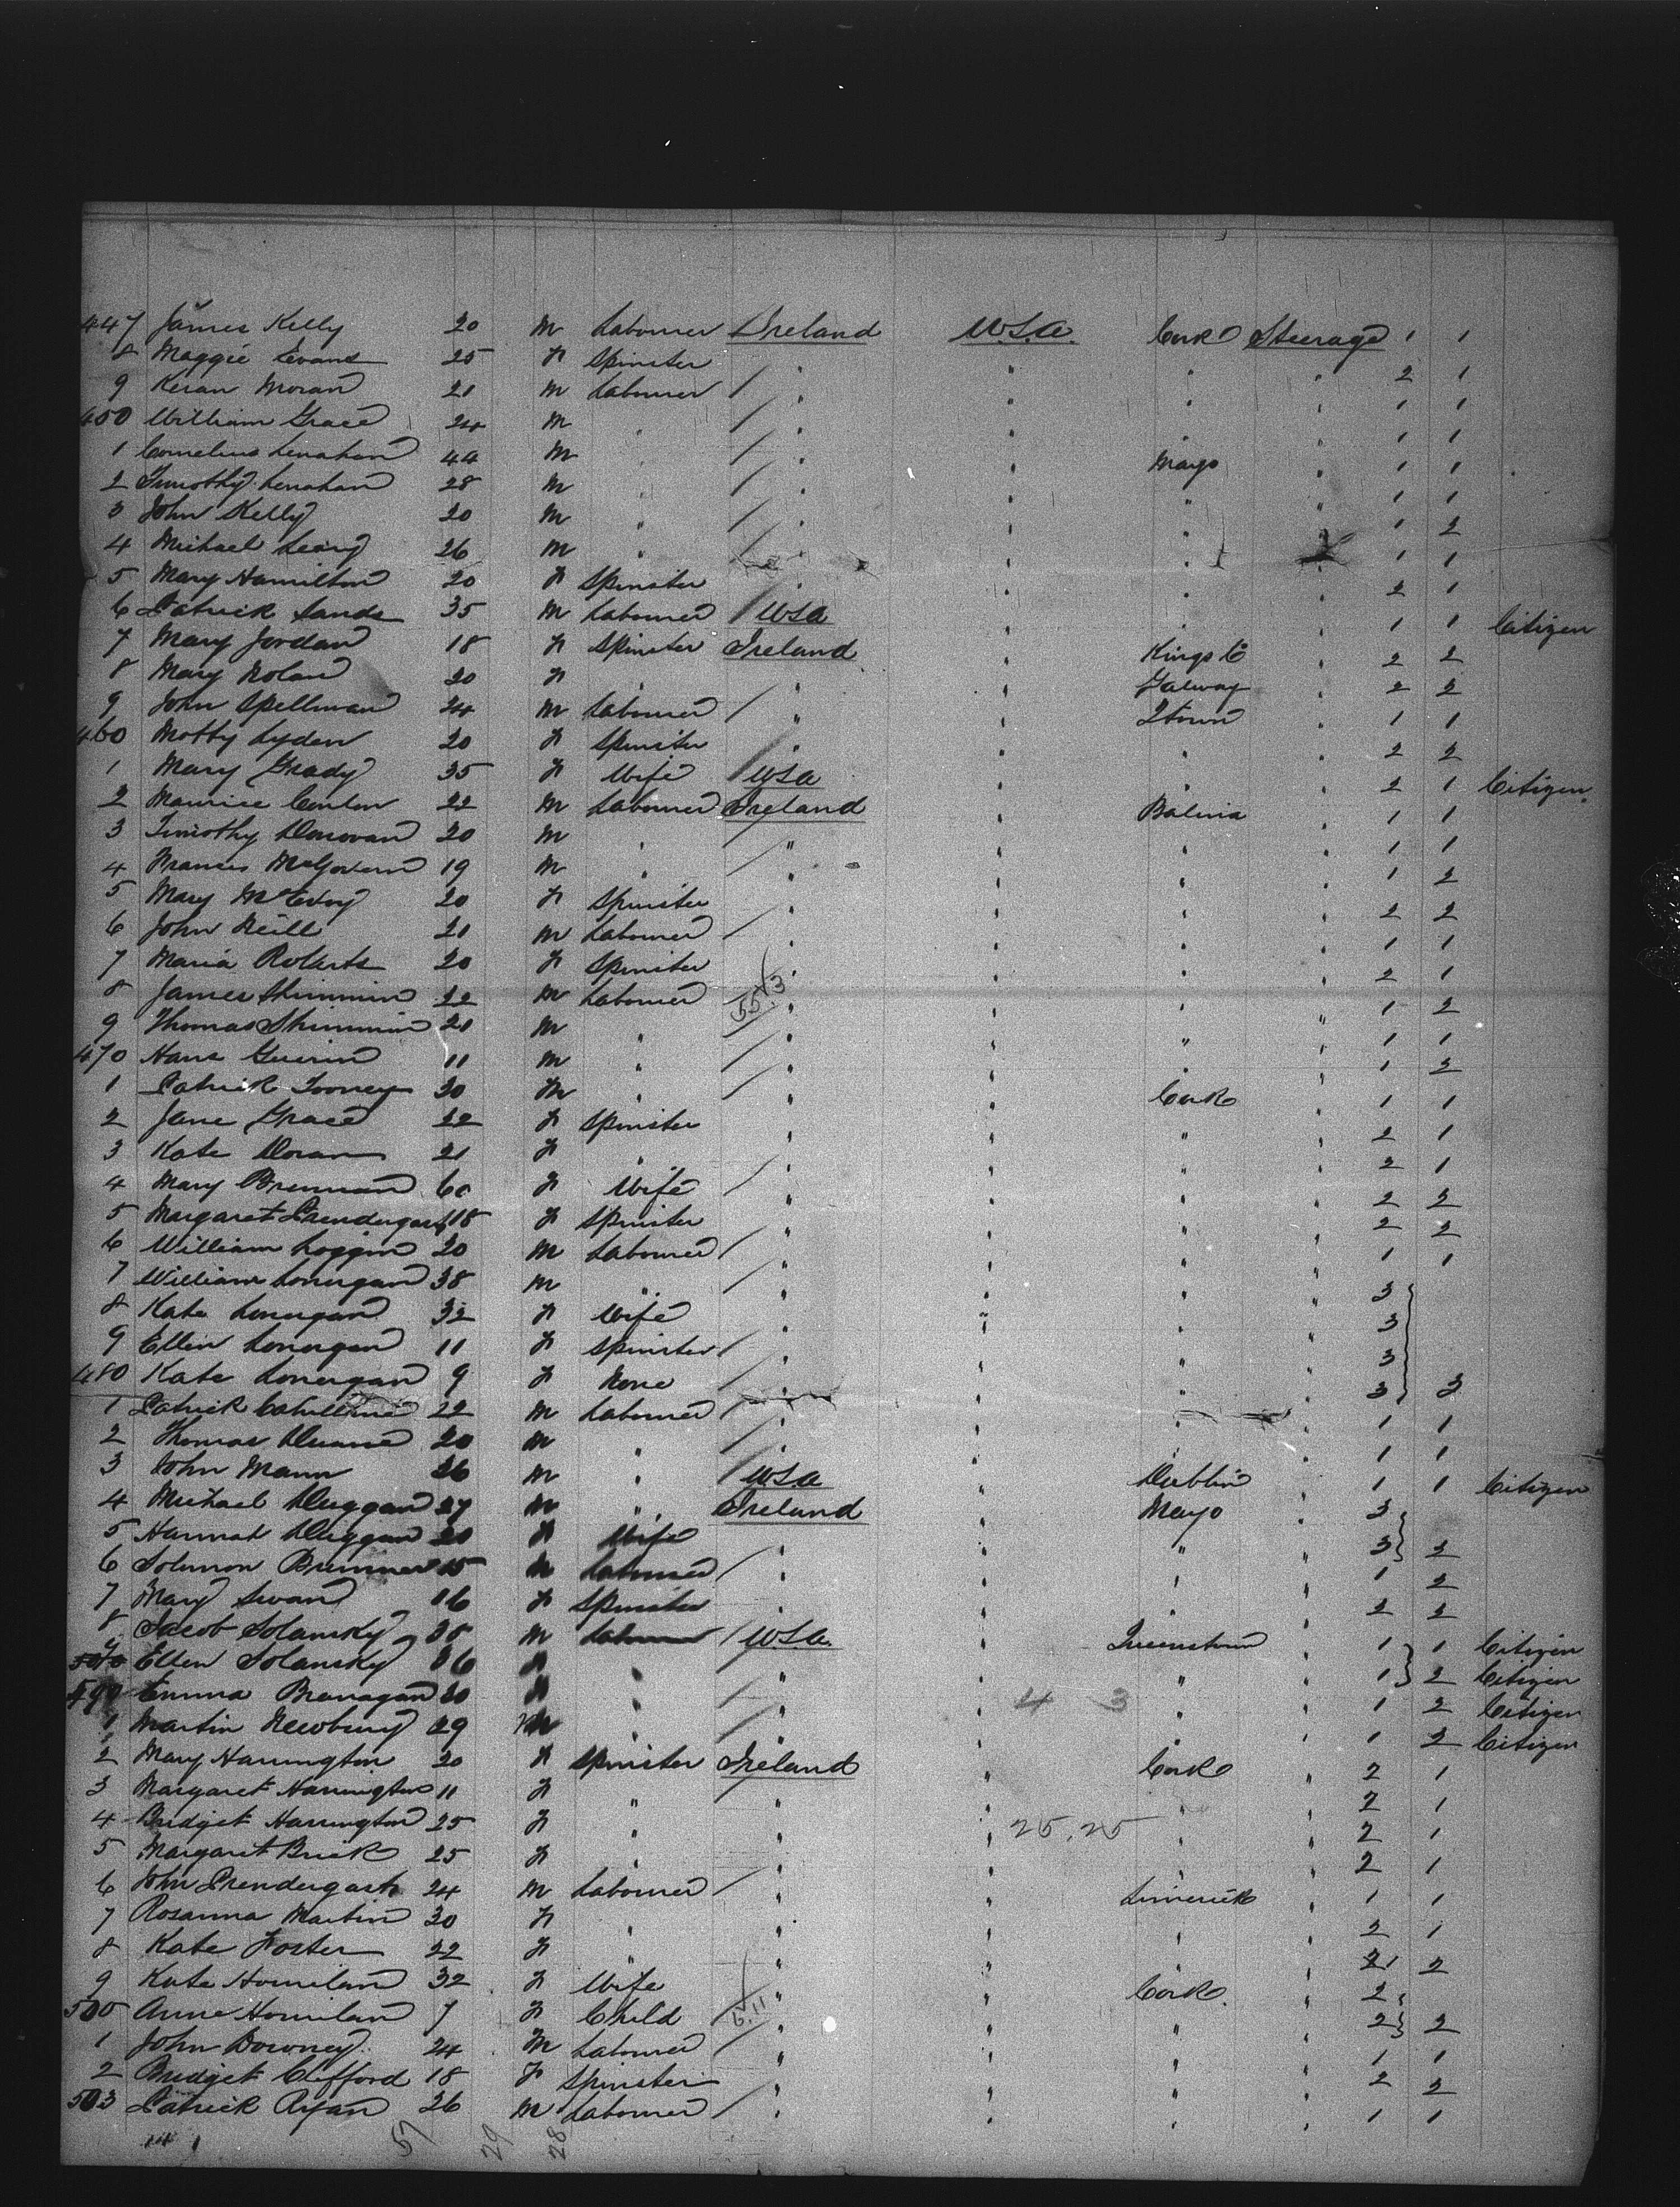 447 James Kelly 20 M Labourer Ireland U.S.A. Cork Steerage 1 1
8 Maggie Evans 25 F Spinster " " " " 2 1
9 Keran Moran 21 M Labourer / " " " " 1 1
450 William Grace 24 M " / " " " " 1 1
1 Cornelius Lenahan 44 M " / " " Mayo " 1 1
2 Timothy Lenahan 28 M " / " " " " 1 1
3 John Kelly 20 M " / " " " " 1 2
4 Michael Leary 26 M " / " " " " 1 1
5 Mary Hamilton 20 F Spinster " " " " 2 1
6 Patrick Sands 35 M Labourer / USA " " " 1 1 Citizen
7 Mary Jordan 18 F Spinster Ireland " Kings Co " 2 2
8 Mary Nolan 20 F " " " Galway " 2 2
9 John Spellman 24 M Labourer / " " Qtown " 1 1
460 Motty Lyden 20 F Spinster " " " " 2 2
1 Mary Grady 35 F Wife / USA " " " 2 1 Citizen
2 Maurice Conlon 22 M Labourer Ireland " Balina " 1 1
3 Timothy Donovan 20 M " / " " " " 1 1
4 Frances McGovern 19 M " / " " " " 1 2
5 Mary McEvoy 20 F Spinster " " " " 2 2
6 John Neill 21 M Labourer / " " " " 1 1
7 Maria Roberts 20 F Spinster " " " " 2 1
8 James Shimmin 22 M Labourer / " " " " 1 2
9 Thomas Shimmin 21 M " / " " " " 1 1
470 Hans Guerin 11 M " / " " " " 1 2
1 Patrick Toomey 30 M " / " " Cork " 1 1
2 Jane Grace 22 F Spinster " " " " 2 1
3 Kate Doran 21 F " " " " " 2 1
4 Mary Brennan 60 F Wife / " " " " 2 2
5 Margaret Prendergast 18 F Spinster " " " " 2 2
6 William Loggin 20 M Labourer / " " " " 1 1
7 William Lonergan 38 M " / " " " " 3
8 Kate Lonergan 32 F Wife " " " " 3
9 Ellen Lonergan 11 F Spinster / " " " " 3
480 Kate Lonergan 9 F None / " " " " 3 2
1 Patrick 22 M Labourer / " " " " 1 1
2 Thomas Duane 20 M " / " " " " 1 1
3 John Mann 26 M " / USA " Dublin " 1 1 Citizen
4 Michael Duggan 27 M " Ireland " Mayo " 3
5 Hannah Duggan 20 F Wife " " " " 3 2
6 Solomon Brenner 15 M Labourer / " " " " 1 2
7 Mary Swan 16 F Spinster " " " " 2 2
8 Jacob Solansky 38 M Labourer / U.S.A. " Queenstown 1 1 Citizen
9 Ellen Solansky 36 F " " " " 1 2 Citizen
490 Emma Branagan 30 F " / " " 4 3 " 1 2 Citizen
1 Martin Newbury 29 M / " " " 1 2 Citizen
2 Mary Harrington 20 F Spinster Ireland " Cork " 2 1
3 Margaret Harrington 11 F " " " " " 2 1
4 Bridget Harrington 25 F " " " 25.25 " " 2 1
5 Margaret Brick 25 F " " " " " 2 1
6 John Prendergast 24 M Labourer / " " Limerick " 1 1
7 Rosanna Martin 30 F " " " " " 2 1
8 Kate Foster 22 F " " " " " 2 2
9 Kate Homilan 32 F Wife " " Cork " 2
500 Anne Homilan 7 F Child " " " " 2 2
1 John Downey 24 M Labourer / " " " " 1 1
2 Bridget Clifford 18 F Spinster " " " " 2 2
503 Patrick Ryan 26 M Labourer / " " " " 1 1
57 29 28